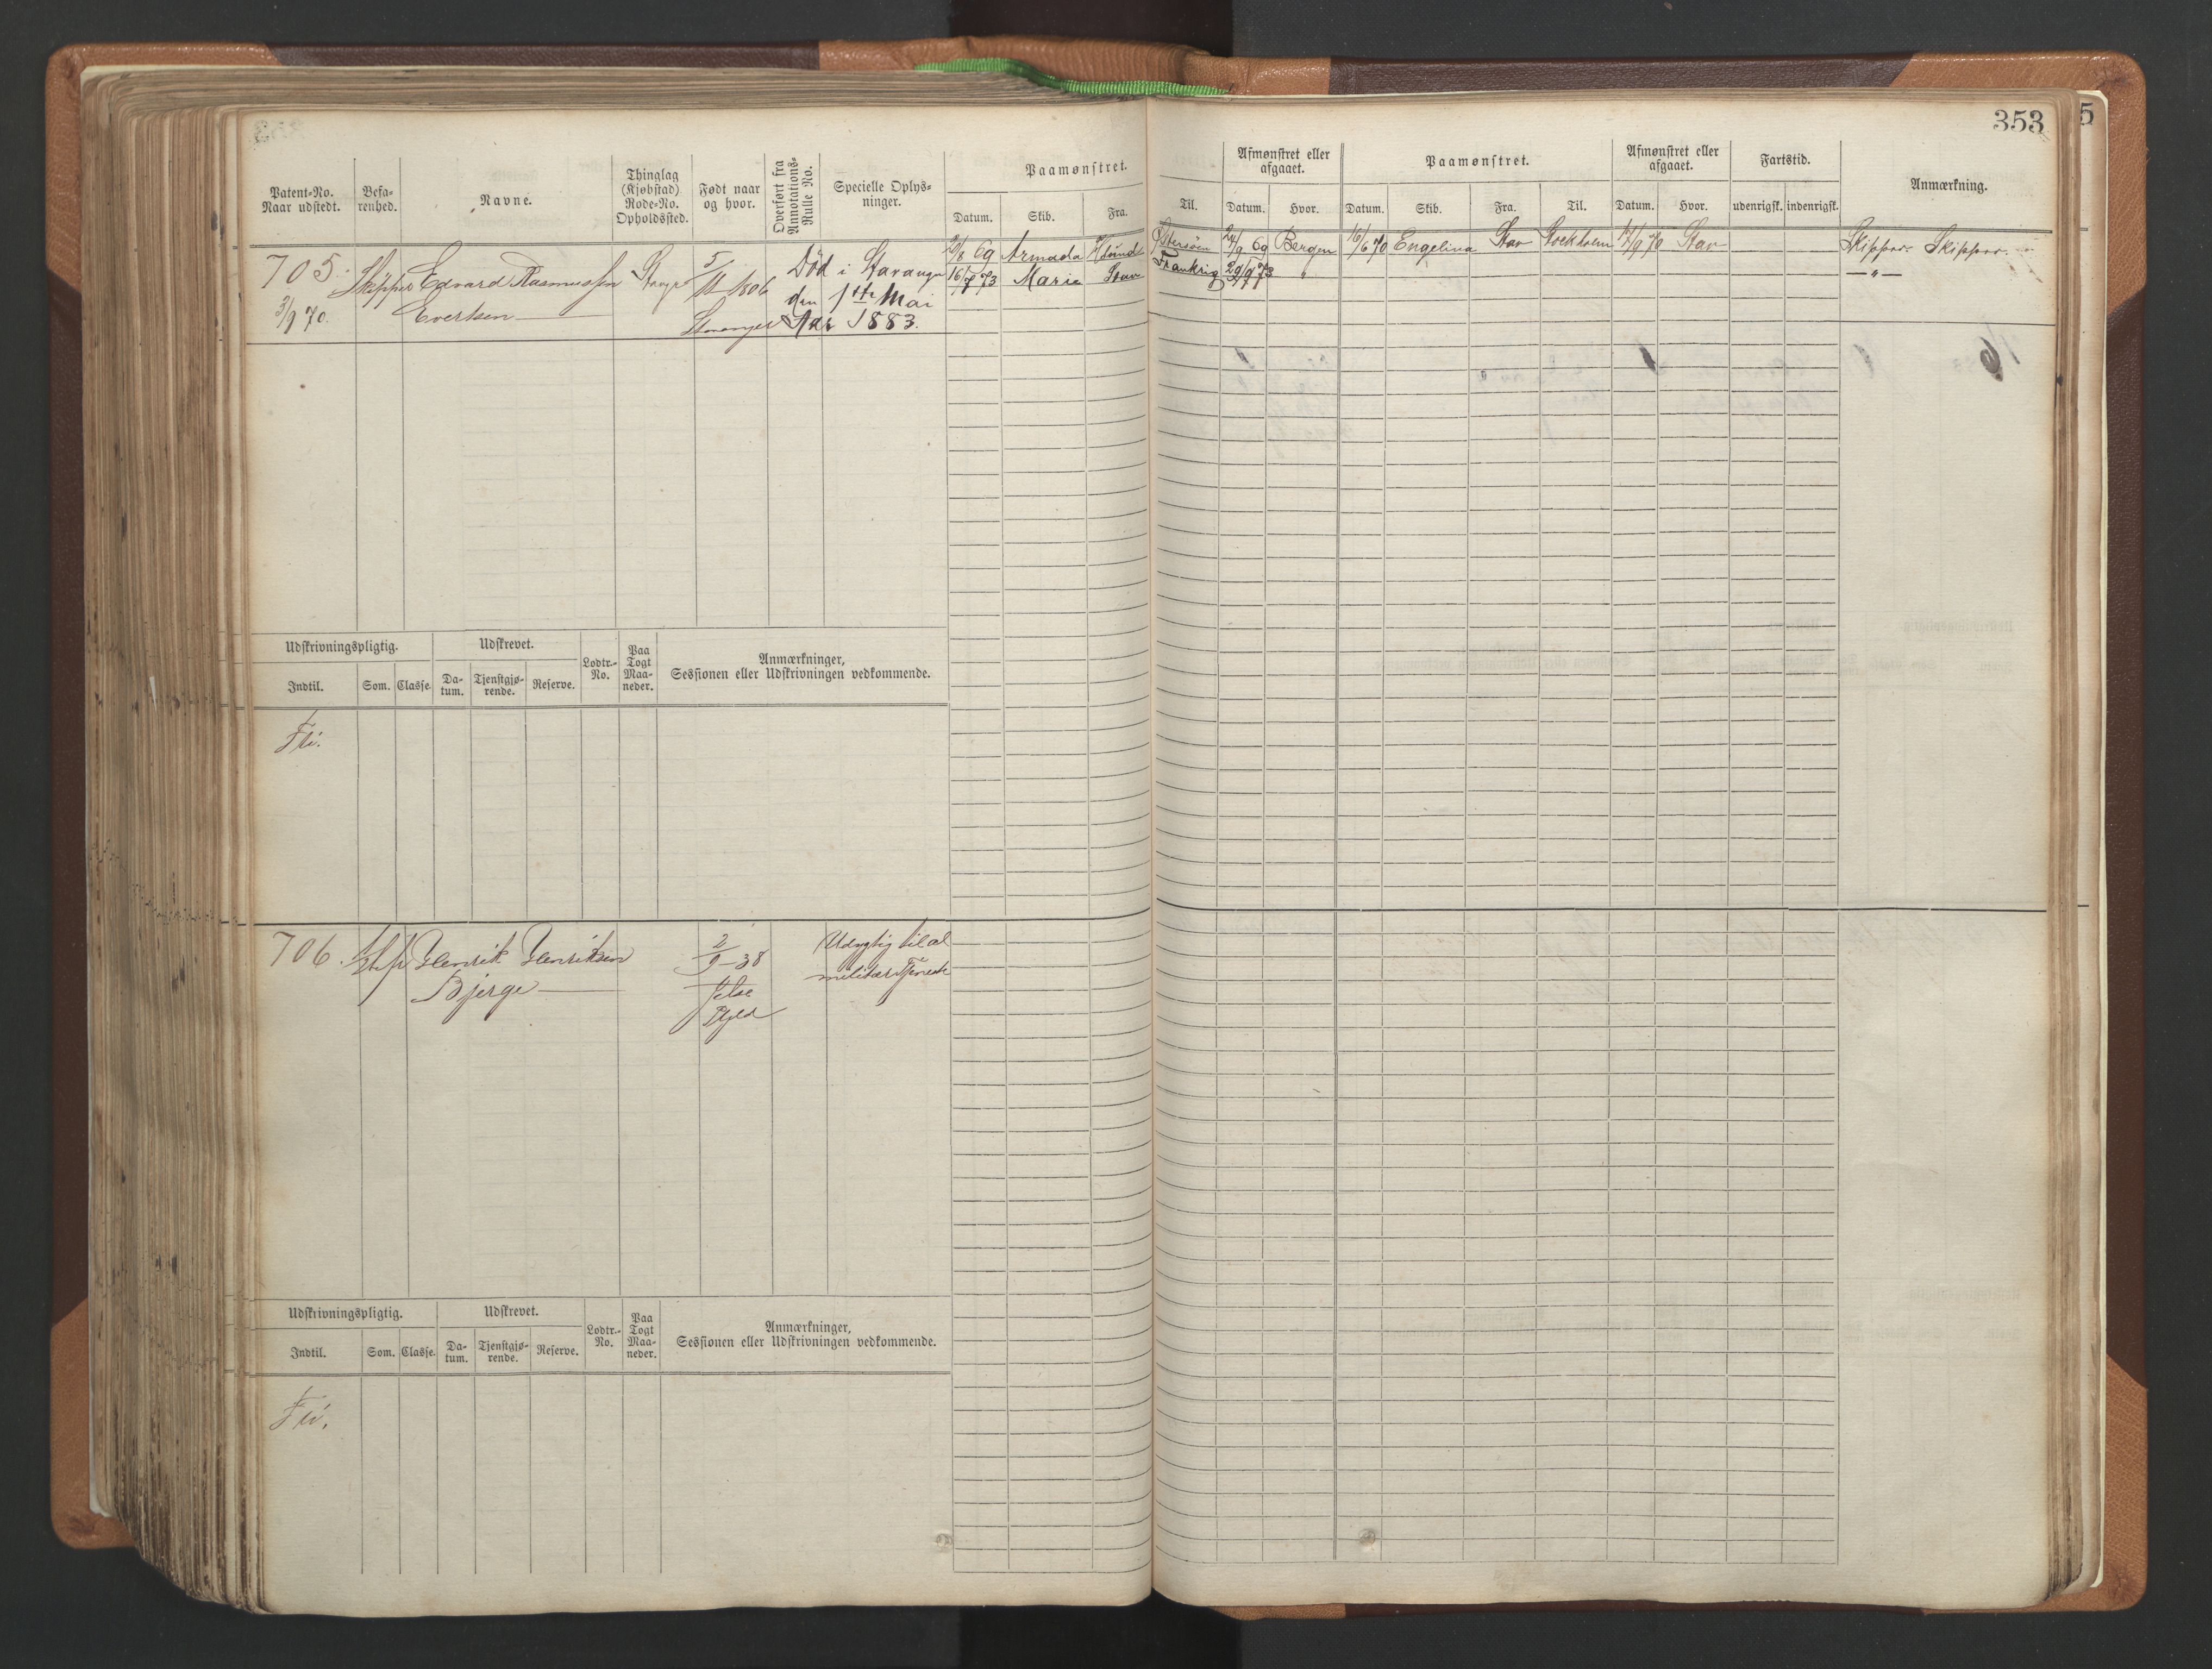 353
5
Patent-No. Naar udstedt.
Befarenhed.
Navne.
Thinglag (Kjøbstad) Rode-No. Opholdssted.
Født naar og hvor.
Overført fra Annotations-Rulle No.
Specielle Oplysninger.
Paamønstret.
Datum. Skib. Fra. Til.
Afmønstret eller afgaaet.
Datum. Hvor.
Paamønstret.
Datum. Skib. Fra. Til.
Afmønstret eller afgaaet.
Datum. Hvor.
Fartstid.
udenrigsk. indenrigsk.
Anmærkning.
705. Skipper Edvard Rasmussen
3/9 70. Evertsen
5/11 1806
Stavanger
Død i Stavanger
den 1ste Mai
Aar 1883.
20/8 69 Armada Østersøen 24/9 69 Bergen 16/6 70 Engelina Stav Stockholm 17/9 70 Stav Skipper. Skipper.
16/7 73 Maria Stav Frankrig 29/9 73 " — " —
Udskrivningspligtig. Udskrevet. Lodtr.-No. Paa Togt Maaneder. Anmærkninger, Sessionen eller Udskrivningen vedkommende.
Indtil. Som. Classe. Datum. Tjenstgjørende. Reserve.
Fri.
706. Henrik Henriksen
Bjerge
2/9 - 38
Jelse
Pgjld
Udygtig til al
militær Tjeneste
Udskrivningspligtig. Udskrevet. Lodtr.-No. Paa Togt Maaneder. Anmærkninger, Sessionen eller Udskrivningen vedkommende.
Indtil. Som. Classe. Datum. Tjenstgjørende. Reserve.
Fri.